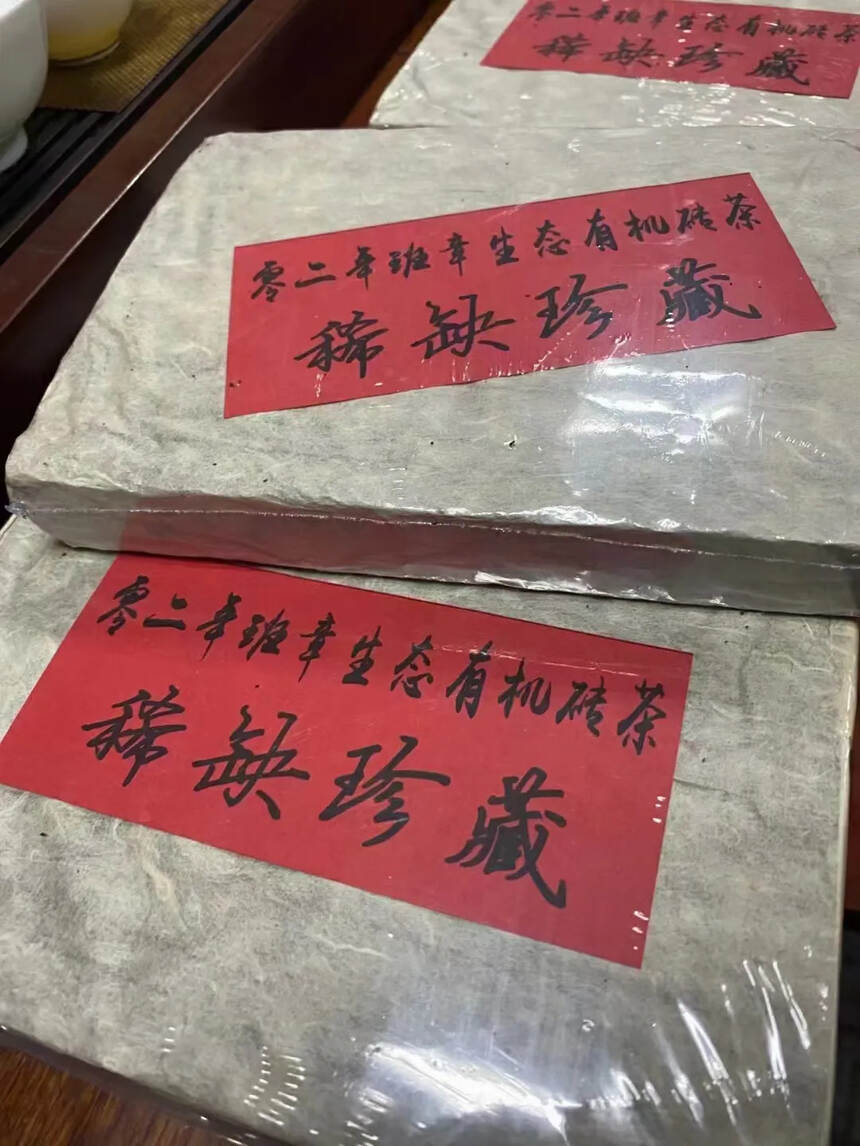 零二年班章生态有机砖茶
稀缺珍藏
零二年班章生态有机砖茶
稀缺珍藏
零二年班章生态有机砖茶
稀缺珍藏